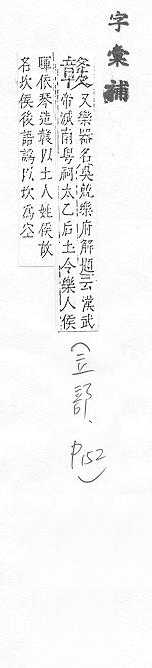 字彙補
又樂器名吳兢樂府解題云漢武
帝滅南粵祠太乙后土令樂人侯
暉依琴造以工人姓侯故
名坎侯後語訛以坎爲空
(立部、P152)